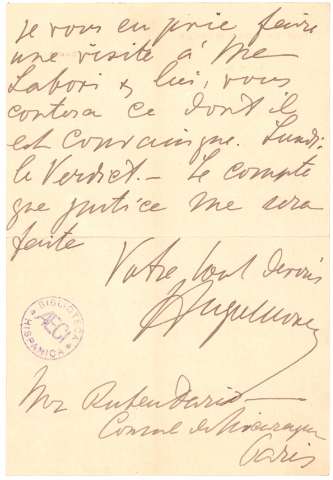 Je vous en prie faire
une visite à Me
Labori & lui, vous
contera ce dont il
est convaincque. Lundi
le Verdict. — Je compte
que justice me sera
faite
Votre tout dévoué
BIBLIOTECA
AECI
HISPANICA
Mr Ruben Dario —
Consul de Nicaragua
Paris